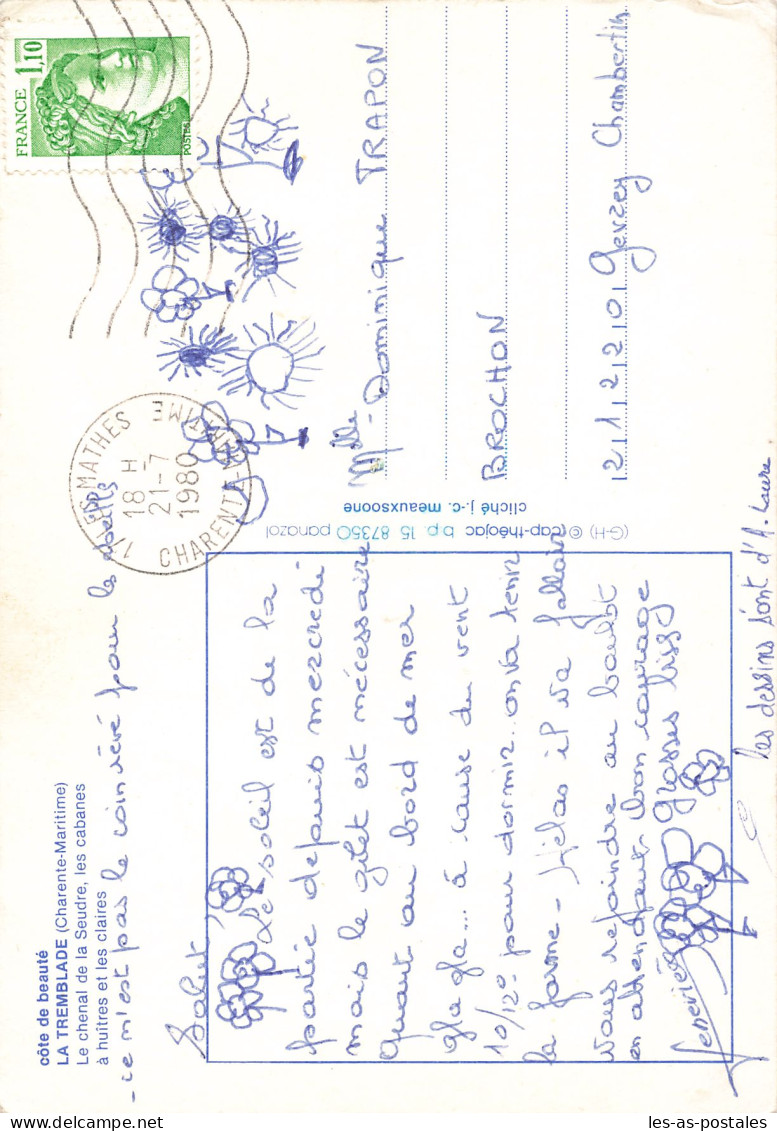 côte de beauté
LA TREMBLADE (Charente-Maritime)
Le chenal de la Seudre, les cabanes
à huîtres et les claires
- ce n'est pas le coin rêvé pour les
Salut,
Le soleil est de la
partie depuis mercredi
mais le gilet est nécessaire
Quant au bord de mer
gla gla... à cause du vent
10/12° pour dormir. on va tenir
la forme - Hélas il va falloir
vous rejoindre au boulot
en attendant bon courage
Grosses bises
Geneviève
les dessins sont d'A. Laure
(G-H) © cap-théojac b.p. 15 87350 panazol
cliché j.-c. meauxsoone
FRANCE 1,10
POSTES
17 LES MATHES
18 H
21-7
1980
CHARENTE-MARITIME
Mlle Dominique TRAPON
BROCHON
21220 Gevrey Chambertin
les-as-postales